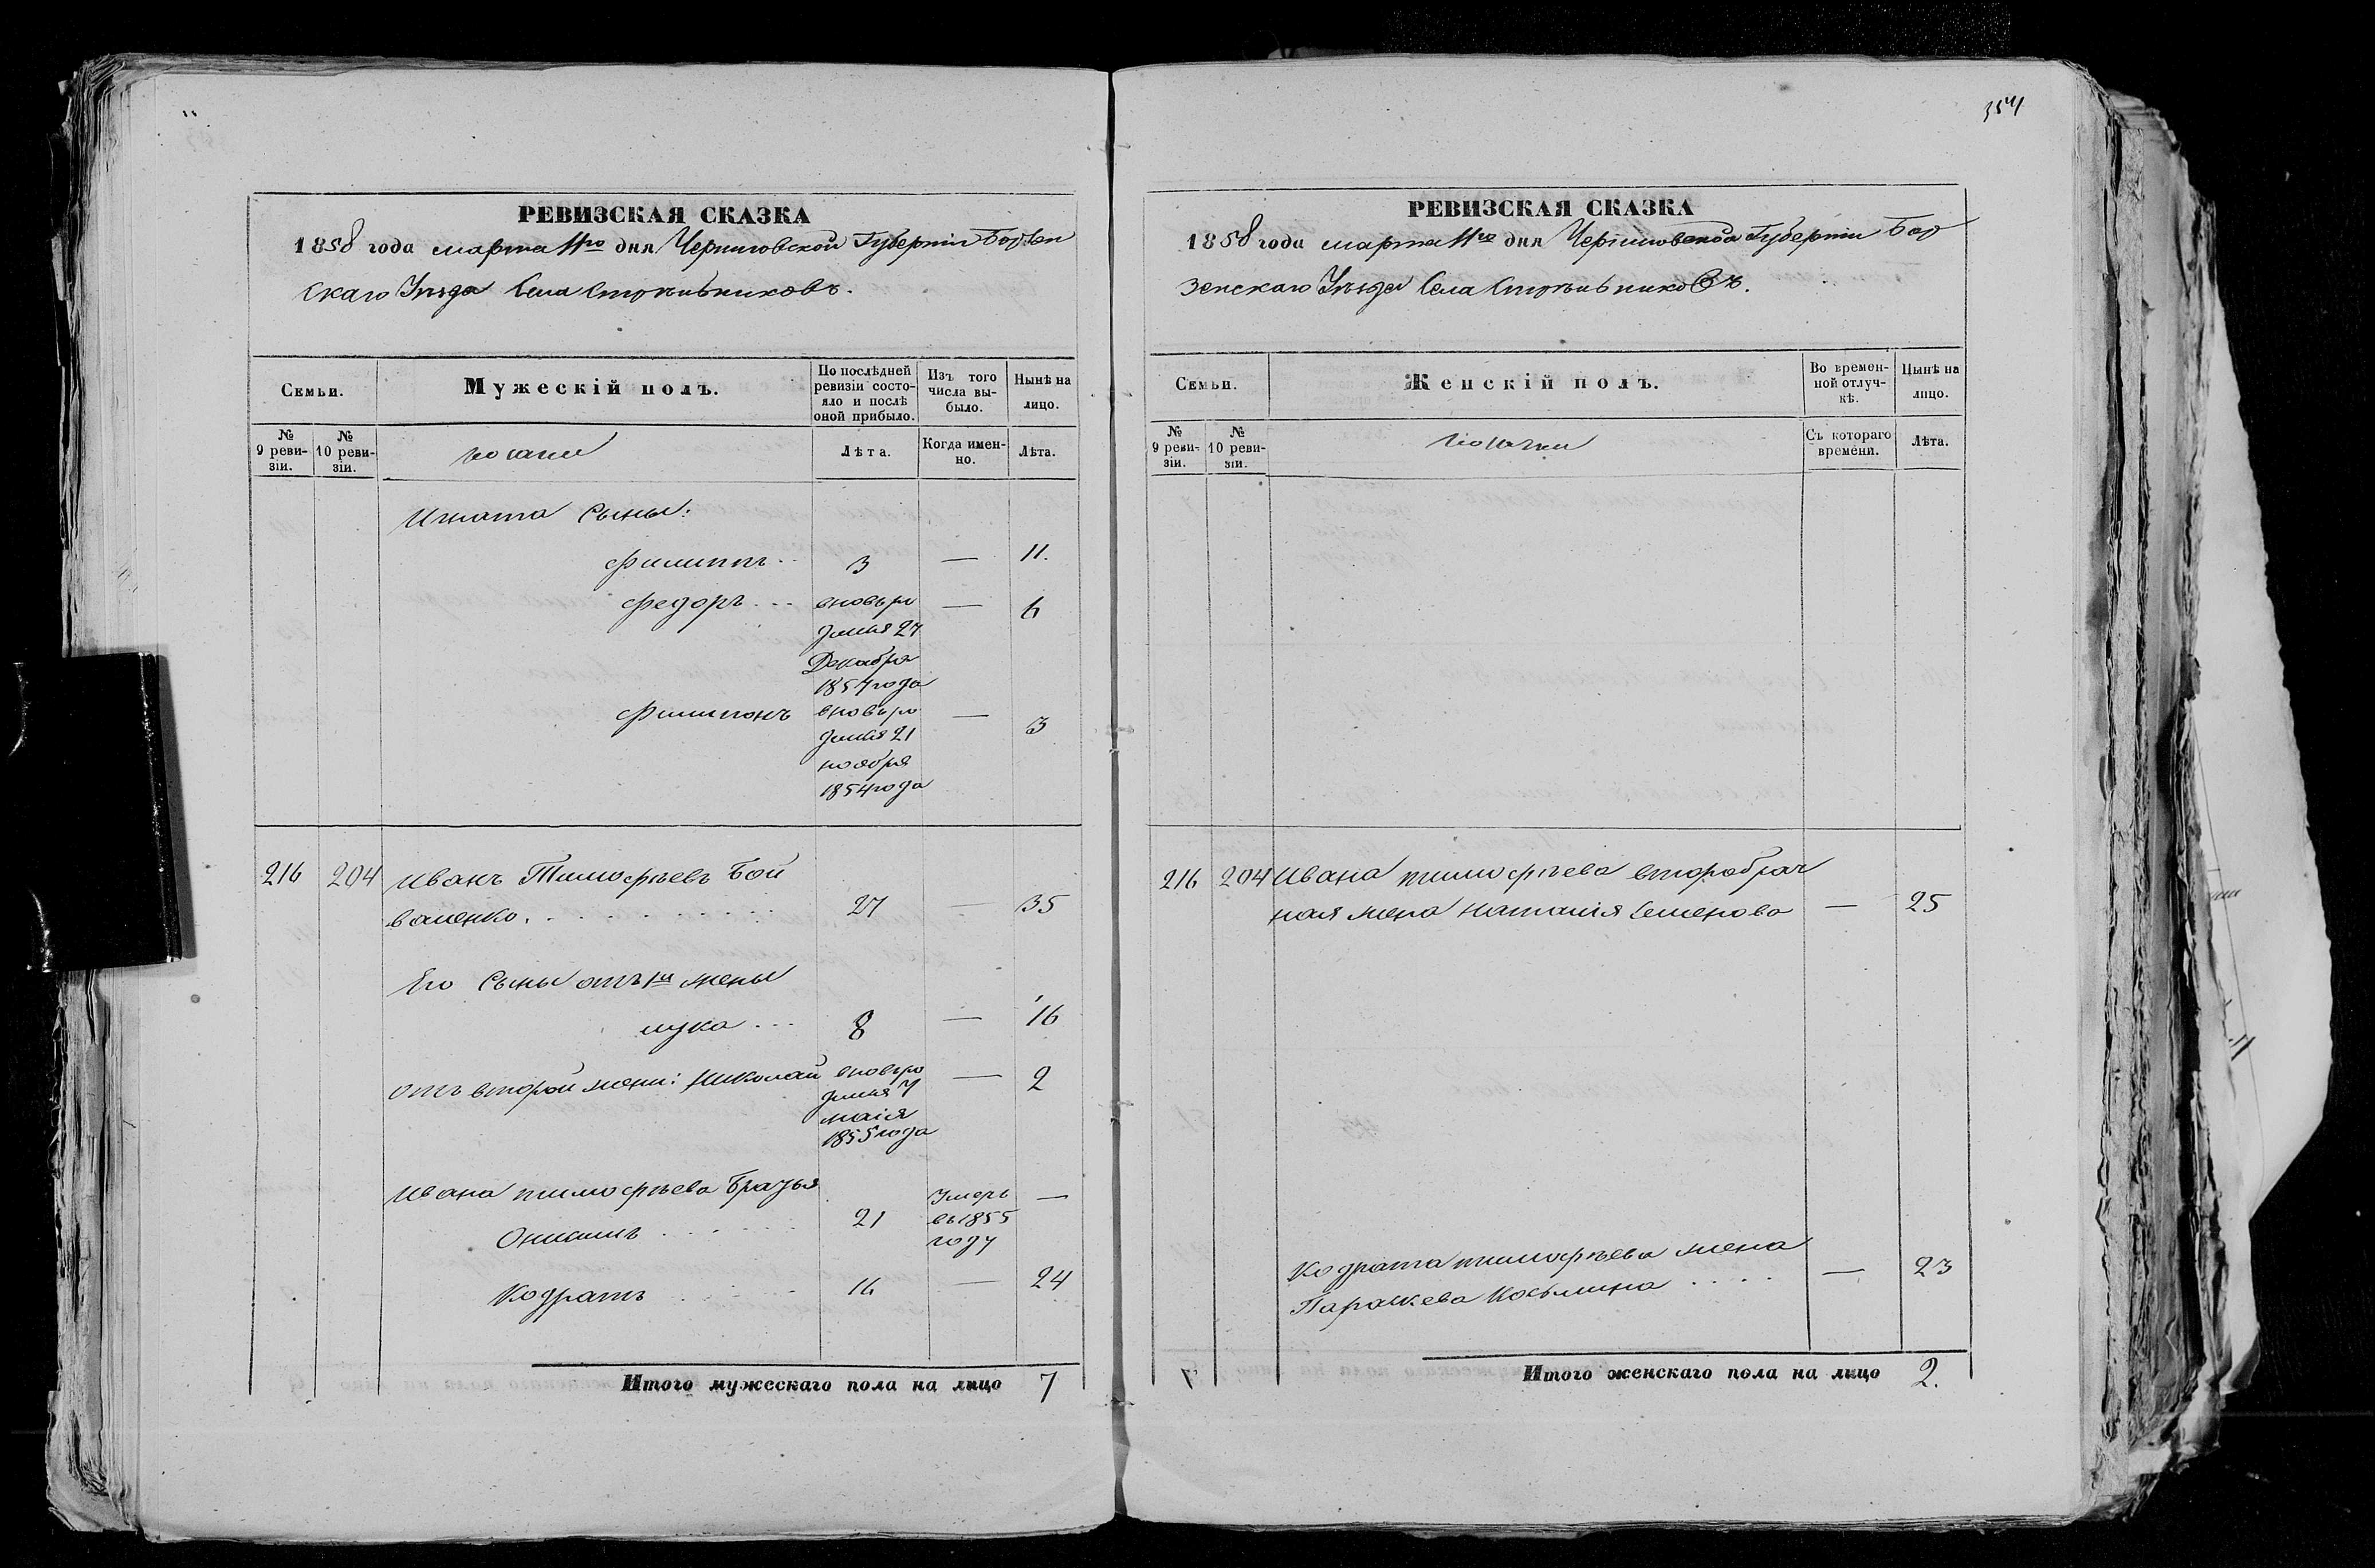 354
РЕВИЗСКАЯ СКАЗКА
1858 года марта 11го дня Черниговской Губерніи Борзен
скаго Уѣзда Села Стрѣльниковъ.
Семьи.
Мужескій полъ.
По послѣдней ревизіи состояло и послѣ оной прибыло.
Изъ того числа выбыло.
Нынѣ на лицо.
№ 9 ревизіи.
№ 10 ревизіи.
козаки
Лѣта.
Когда именно.
Лѣта.
Игната Сыны:
Филиппъ .. 3 — 11.
Федоръ ... вновь ро — 6
жденъ 27
Декабря
1851 года
Филимонъ вновь ро — 3
жденъ 21
ноября
1854 года
216 204 Иванъ Тимофѣевъ Бой
валенко. 27 — 35
Его Сыны отъ 1й жены
лука ... 8 — 16
отъ второй жены: Николай вновь ро — 2
жденъ 7
маія
1855 года
Ивана тимофѣева братья
Онисимъ 21 Умеръ —
въ 1855
году
Кодратъ 16 — 24
Итого мужескаго пола на лицо 7
РЕВИЗСКАЯ СКАЗКА
1858 года марта 11го дня Черниговской Губерніи Бор
зенскаго Уѣзда Села Стрѣльниковъ.
Семьи.
Женскій полъ.
Во временной отлучкѣ.
Нынѣ на лицо.
№ 9 ревизіи.
№ 10 ревизіи.
козачки
Съ котораго времени.
Лѣта.
216 204 Ивана тимофѣева вторабрач
ная жена наталія Семенова — 25
Кодрата тимофѣева жена
Параскева Косьмина .... — 23
Итого женскаго пола на лицо 2.